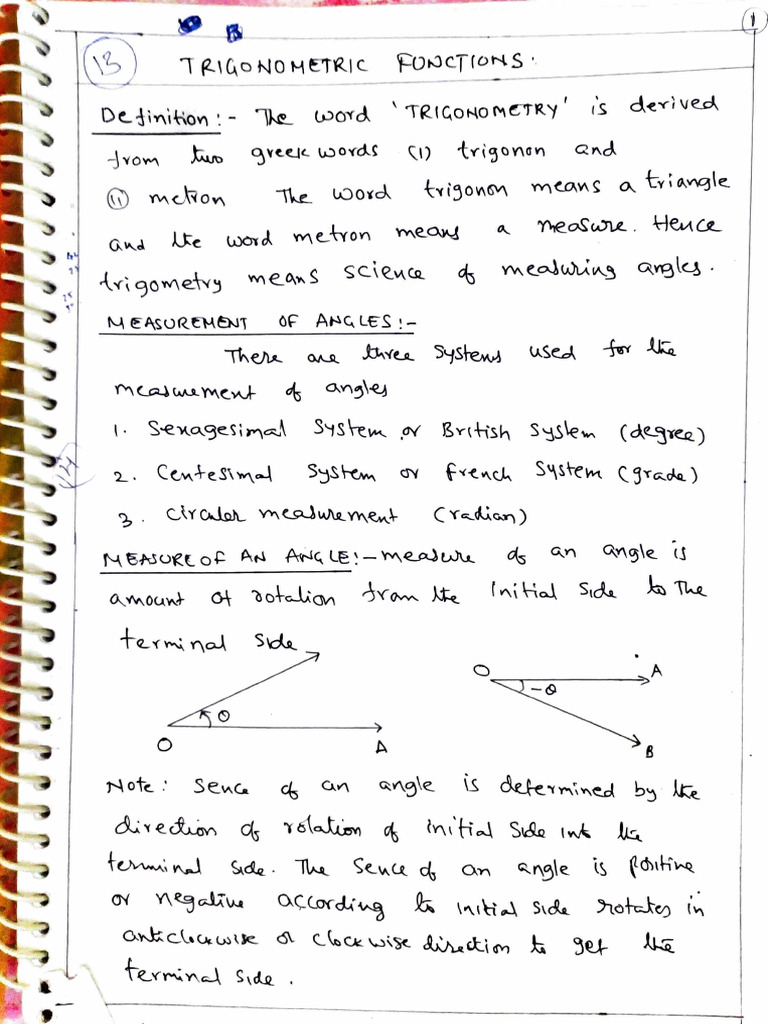 1
13
TRIGONOMETRIC FUNCTIONS.
Definition :- The word 'TRIGONOMETRY' is derived
from two greek words (1) trigonon and
(11) metron The word trigonon means a triangle
and the word metron means a measure. Hence
trigometry means science of measuring angles.
MEASUREMENT OF ANGLES :-
There are three systems used for the
measurement of angles
1. Sexagesimal System or British System (degree)
2. Centesimal System or french System (grade)
3. Circular measurement (radian)
MEASURE OF AN ANGLE :- measure of an angle is
amount of rotation from the Initial side to The
terminal side
O θ A
O -θ A B
Note : Sence of an angle is determined by the
direction of rotation of initial side into the
terminal side. The sence of an angle is positive
or negative according to initial side rotates in
anticlockwise or clockwise direction to get the
terminal side.